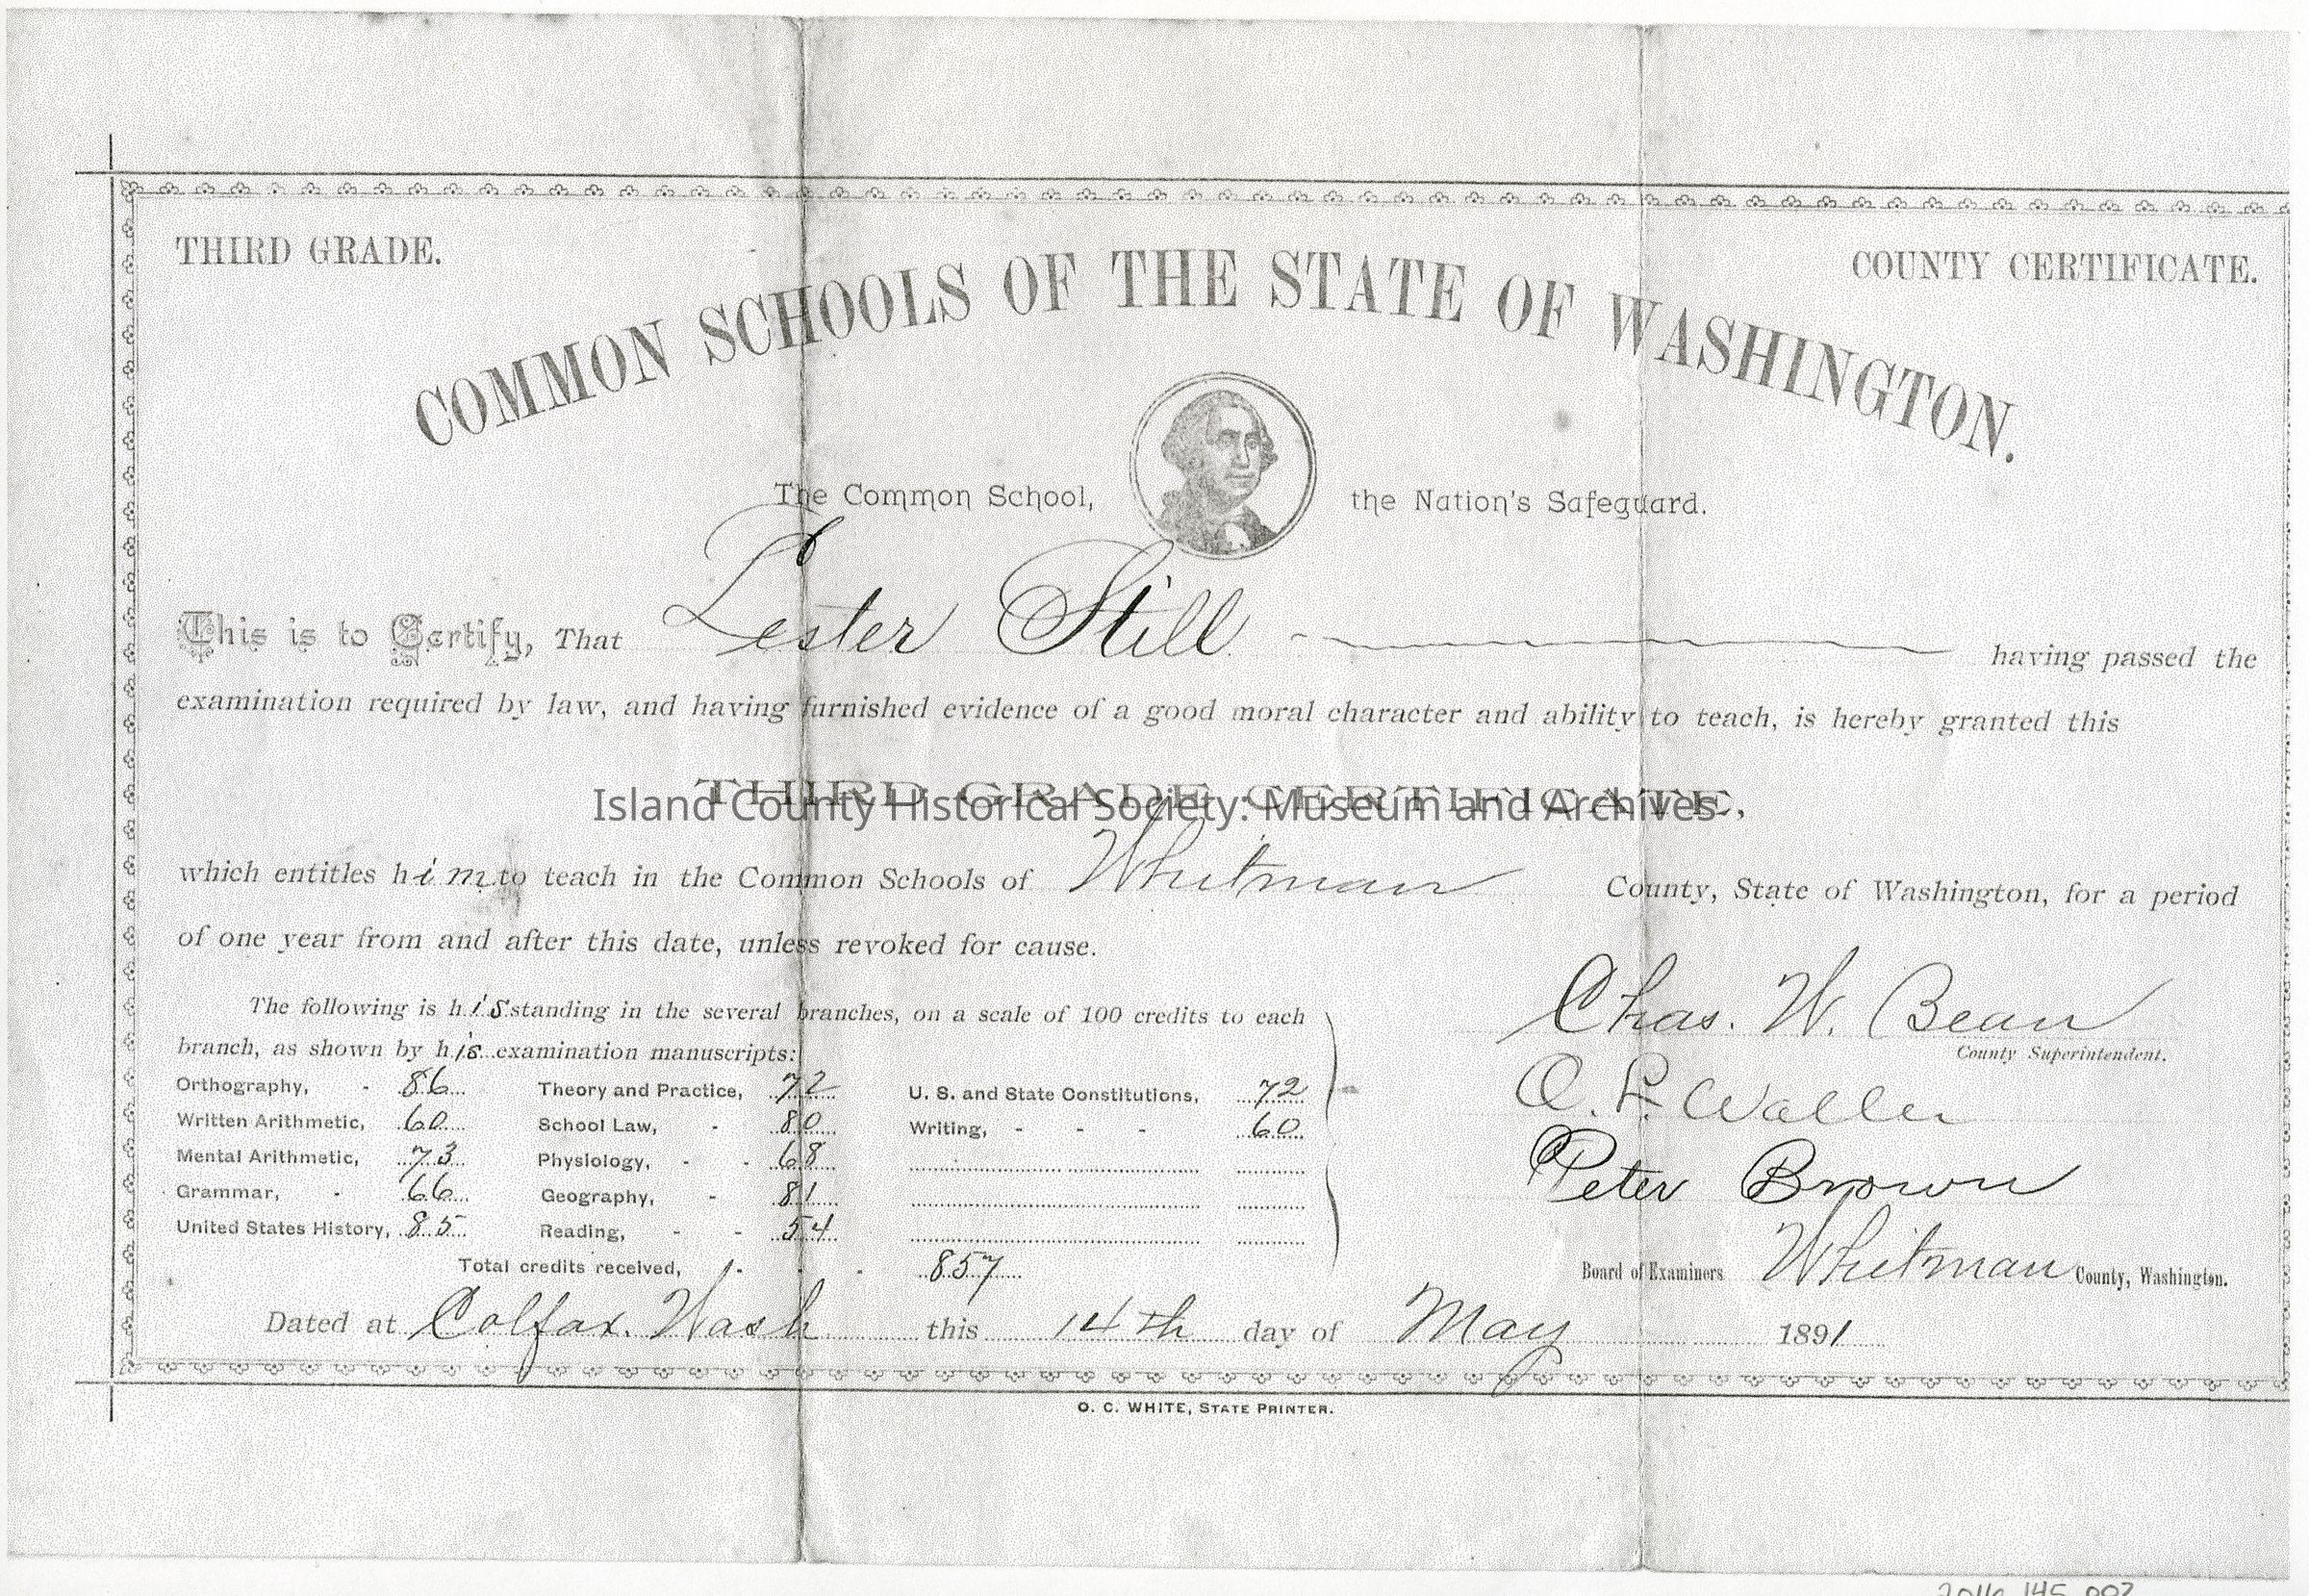 THIRD GRADE. COUNTY CERTIFICATE.
COMMON SCHOOLS OF THE STATE OF WASHINGTON.
The Common School, the Nation's Safeguard.
This is to Certify, That Lester Still having passed the
examination required by law, and having furnished evidence of a good moral character and ability to teach, is hereby granted this
THIRD GRADE CERTIFICATE,
Island County Historical Society: Museum and Archives
which entitles him to teach in the Common Schools of Whitman County, State of Washington, for a period
of one year from and after this date, unless revoked for cause.
The following is his standing in the several branches, on a scale of 100 credits to each
branch, as shown by his examination manuscripts:
Orthography, - 86 Theory and Practice, 72 U. S. and State Constitutions, 72
Written Arithmetic, 60 School Law, - 80 Writing, - - - 60
Mental Arithmetic, 73 Physiology, - - 68
Grammar, - 66 Geography, - 81
United States History, 85 Reading, - - 54
Total credits received, - - - 857
Chas. W. Bean
County Superintendent.
O. L. Waller
Peter Brown
Board of Examiners Whitman County, Washington.
Dated at Colfax. Wash this 14th day of May 1891
O. C. WHITE, STATE PRINTER.